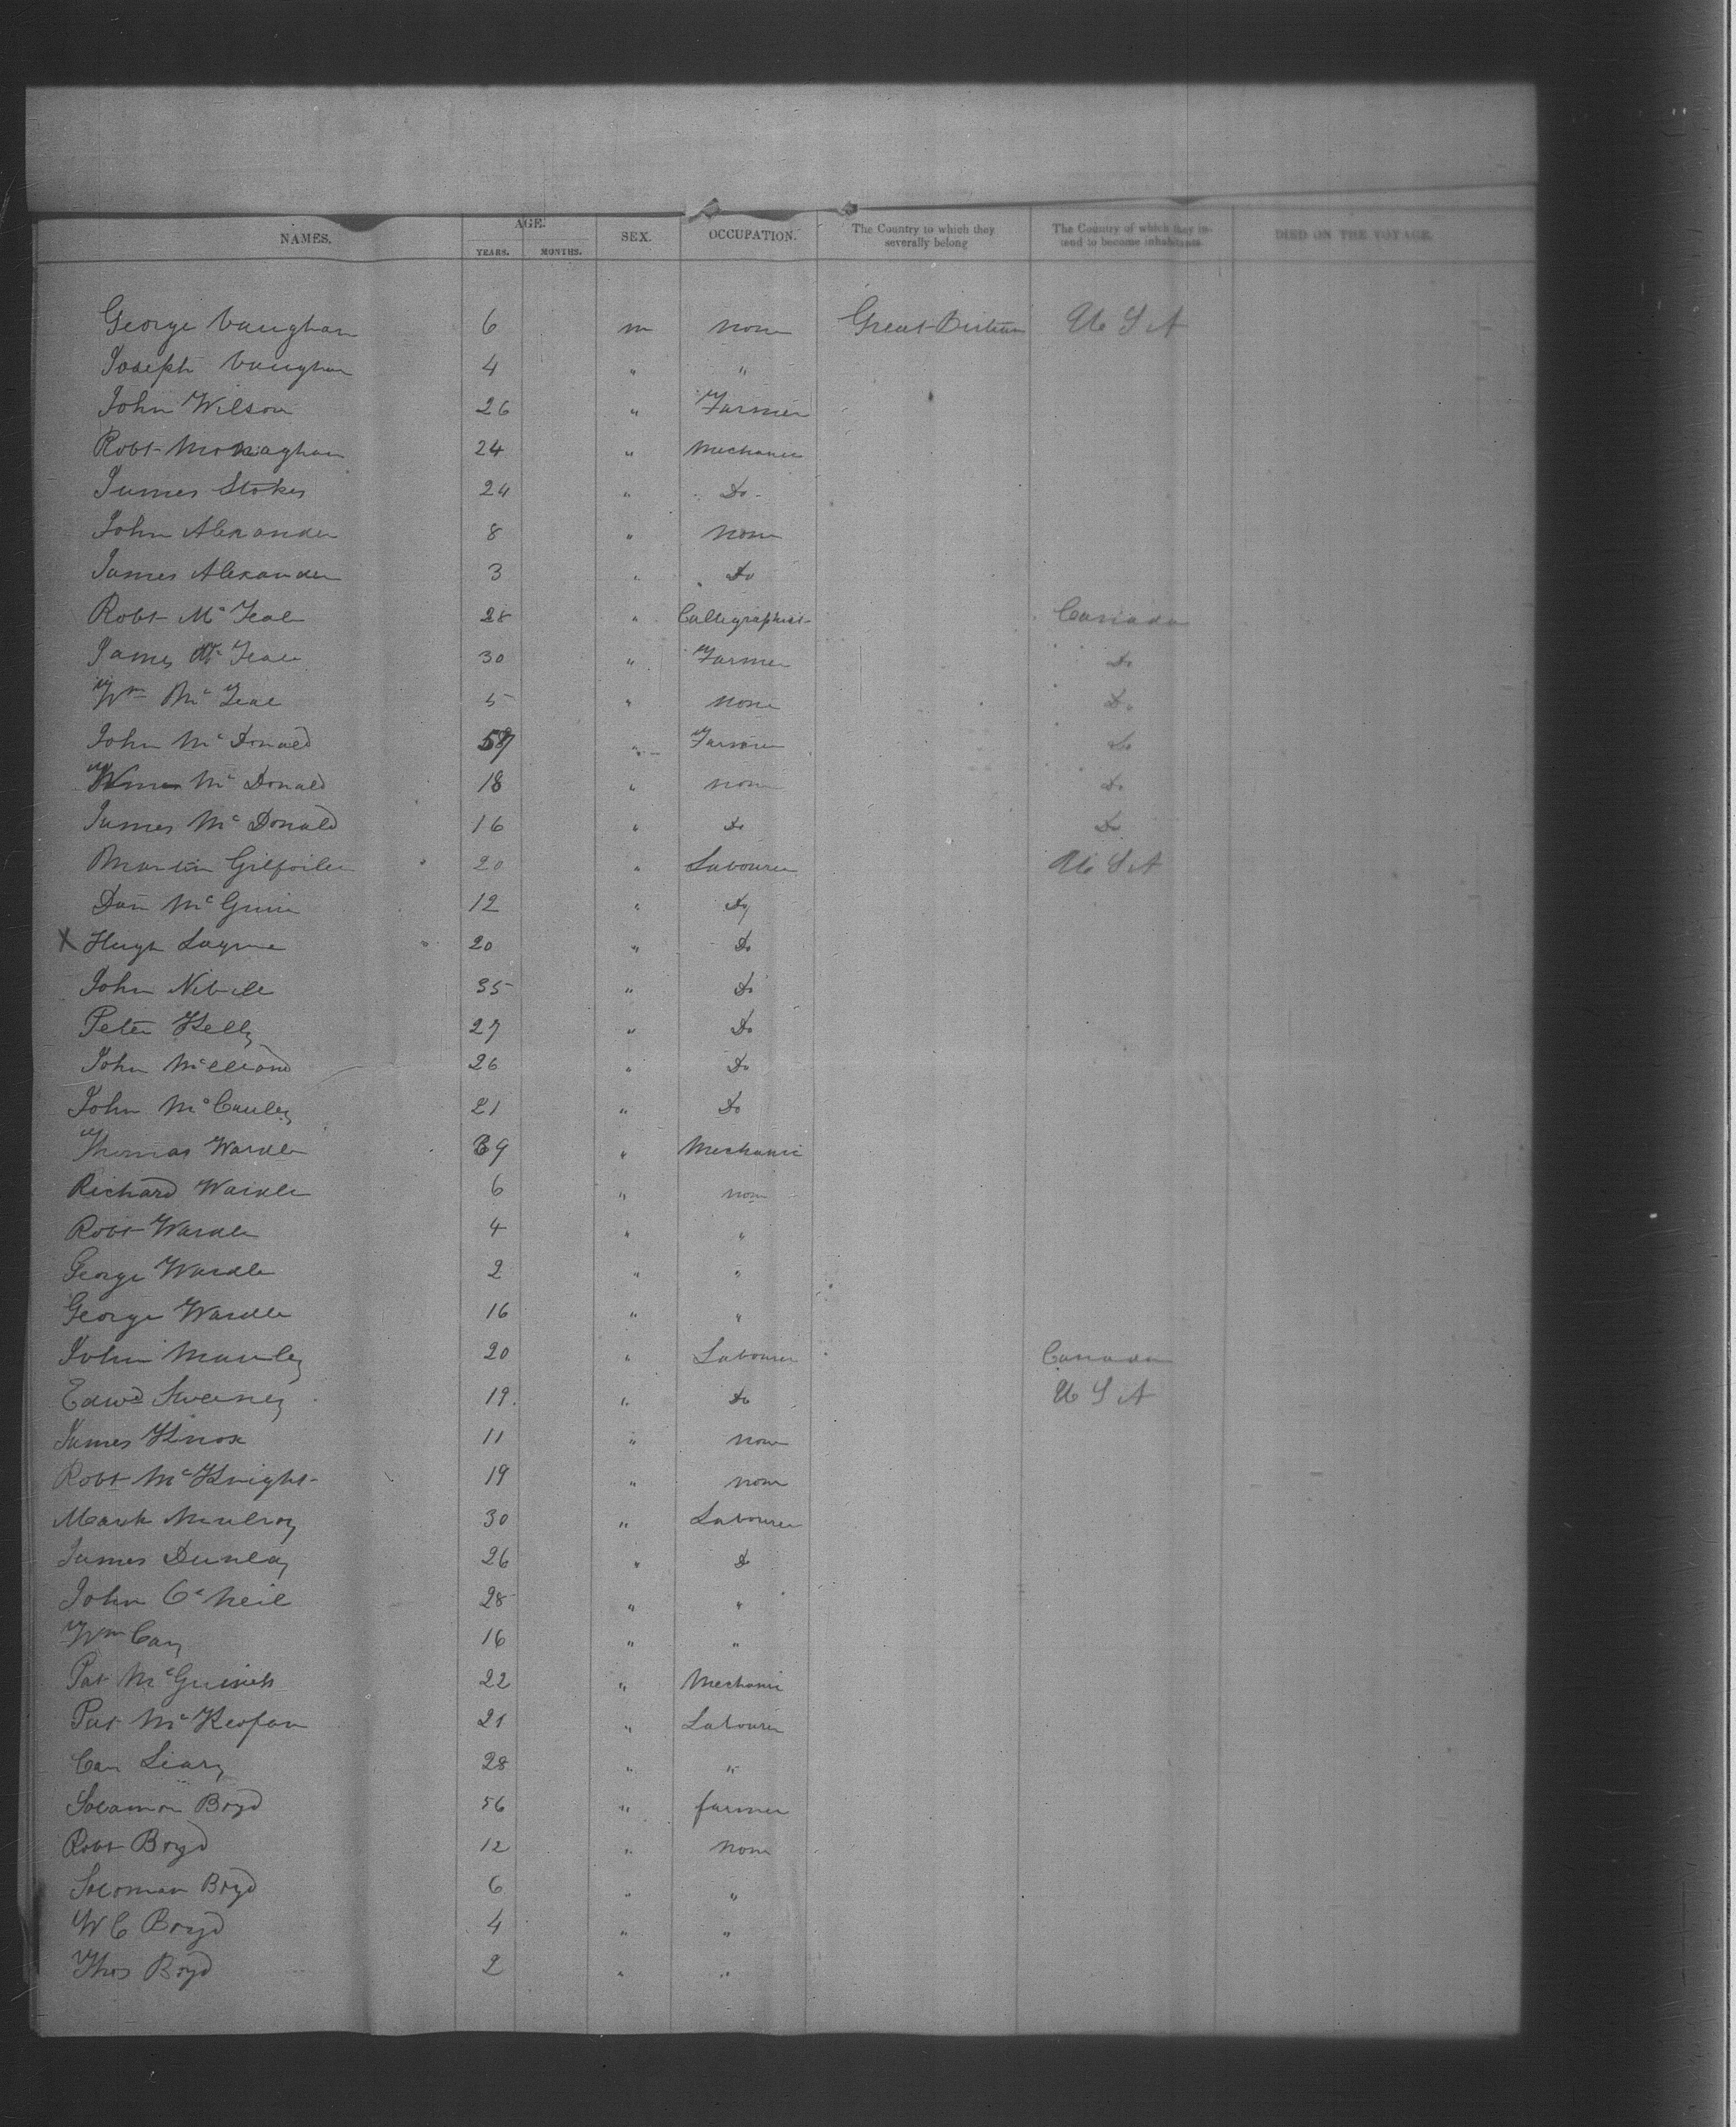 NAMES. AGE. YEARS. MONTHS. SEX. OCCUPATION. The Country to which they severally belong The Country of which they intend to become inhabitants. DIED ON THE VOYAGE.
George Vaughan 6 m none Great Britain U S A
Joseph Vaughan 4 " "
John Wilson 26 " Farmer
Robt Monaghan 24 " Mechanic
James Stokes 24 " Do
John Alexander 8 " none
James Alexander 3 " Do
Robt Mc 28 " Calligraphist Canada
James Mc 30 " Farmer Do
Wm Mc 5 " none Do
John McDonald " Farmer Do
McDonald 18 " none Do
James McDonald 16 " Do Do
Martin Gilfoile 20 " Labourer U S A
Dan McGuin 12 " Do
X Hugh 20 " Do
John 35 " Do
Peter Kelly 27 " Do
John 26 " Do
John McCauley 21 " Do
Thomas Wardle 39 " Mechanic
Richard Wardle 6 " none
Robt Wardle 4 " "
George Wardle 2 " "
George Wardle 16 " "
John 20 " Labourer Canada
Edwd Sweeney 19 " Do U S A
James Knox 11 " none
Robt McKnight 19 " none
Mark Mulroy 30 " Labourer
James Dunlay 26 " Do
John O'Neil 28 " "
Wm 16 " "
Pat McGuiness 22 " Mechanic
Pat Mc 21 " Labourer
Leary 28 " "
Solamon Boyd 56 " farmer
Robt Boyd 12 " none
Soloman Boyd 6 " "
W C Boyd 4 " "
Thos Boyd 2 " "